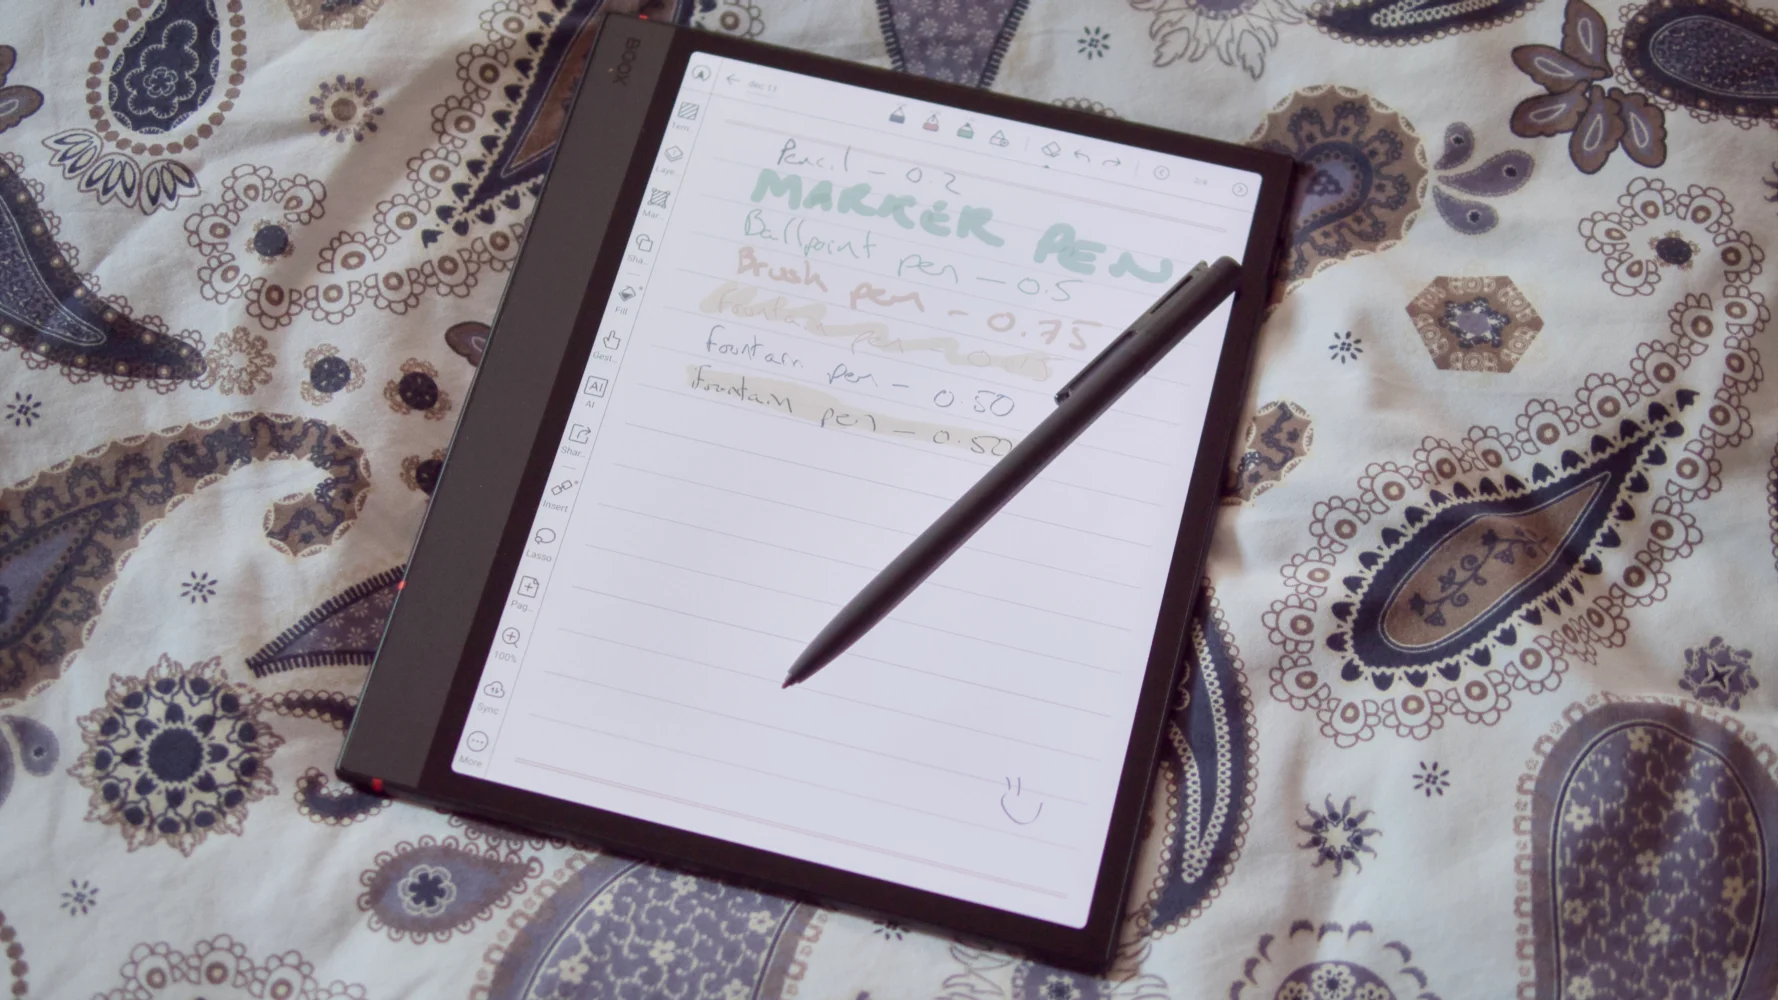 BOOX
dec 17
Pencil - 0.2
MARKER PEN
Ballpoint pen - 0.5
Brush pen - 0.75
Fountain pen
Fountain pen - 0.50
Fountain pen - 0.50
Tem..
Laye..
Mar..
Sha..
Fill
Gest..
AI
AI
Shar..
Insert
Lasso
Pag..
100%
Sync
More